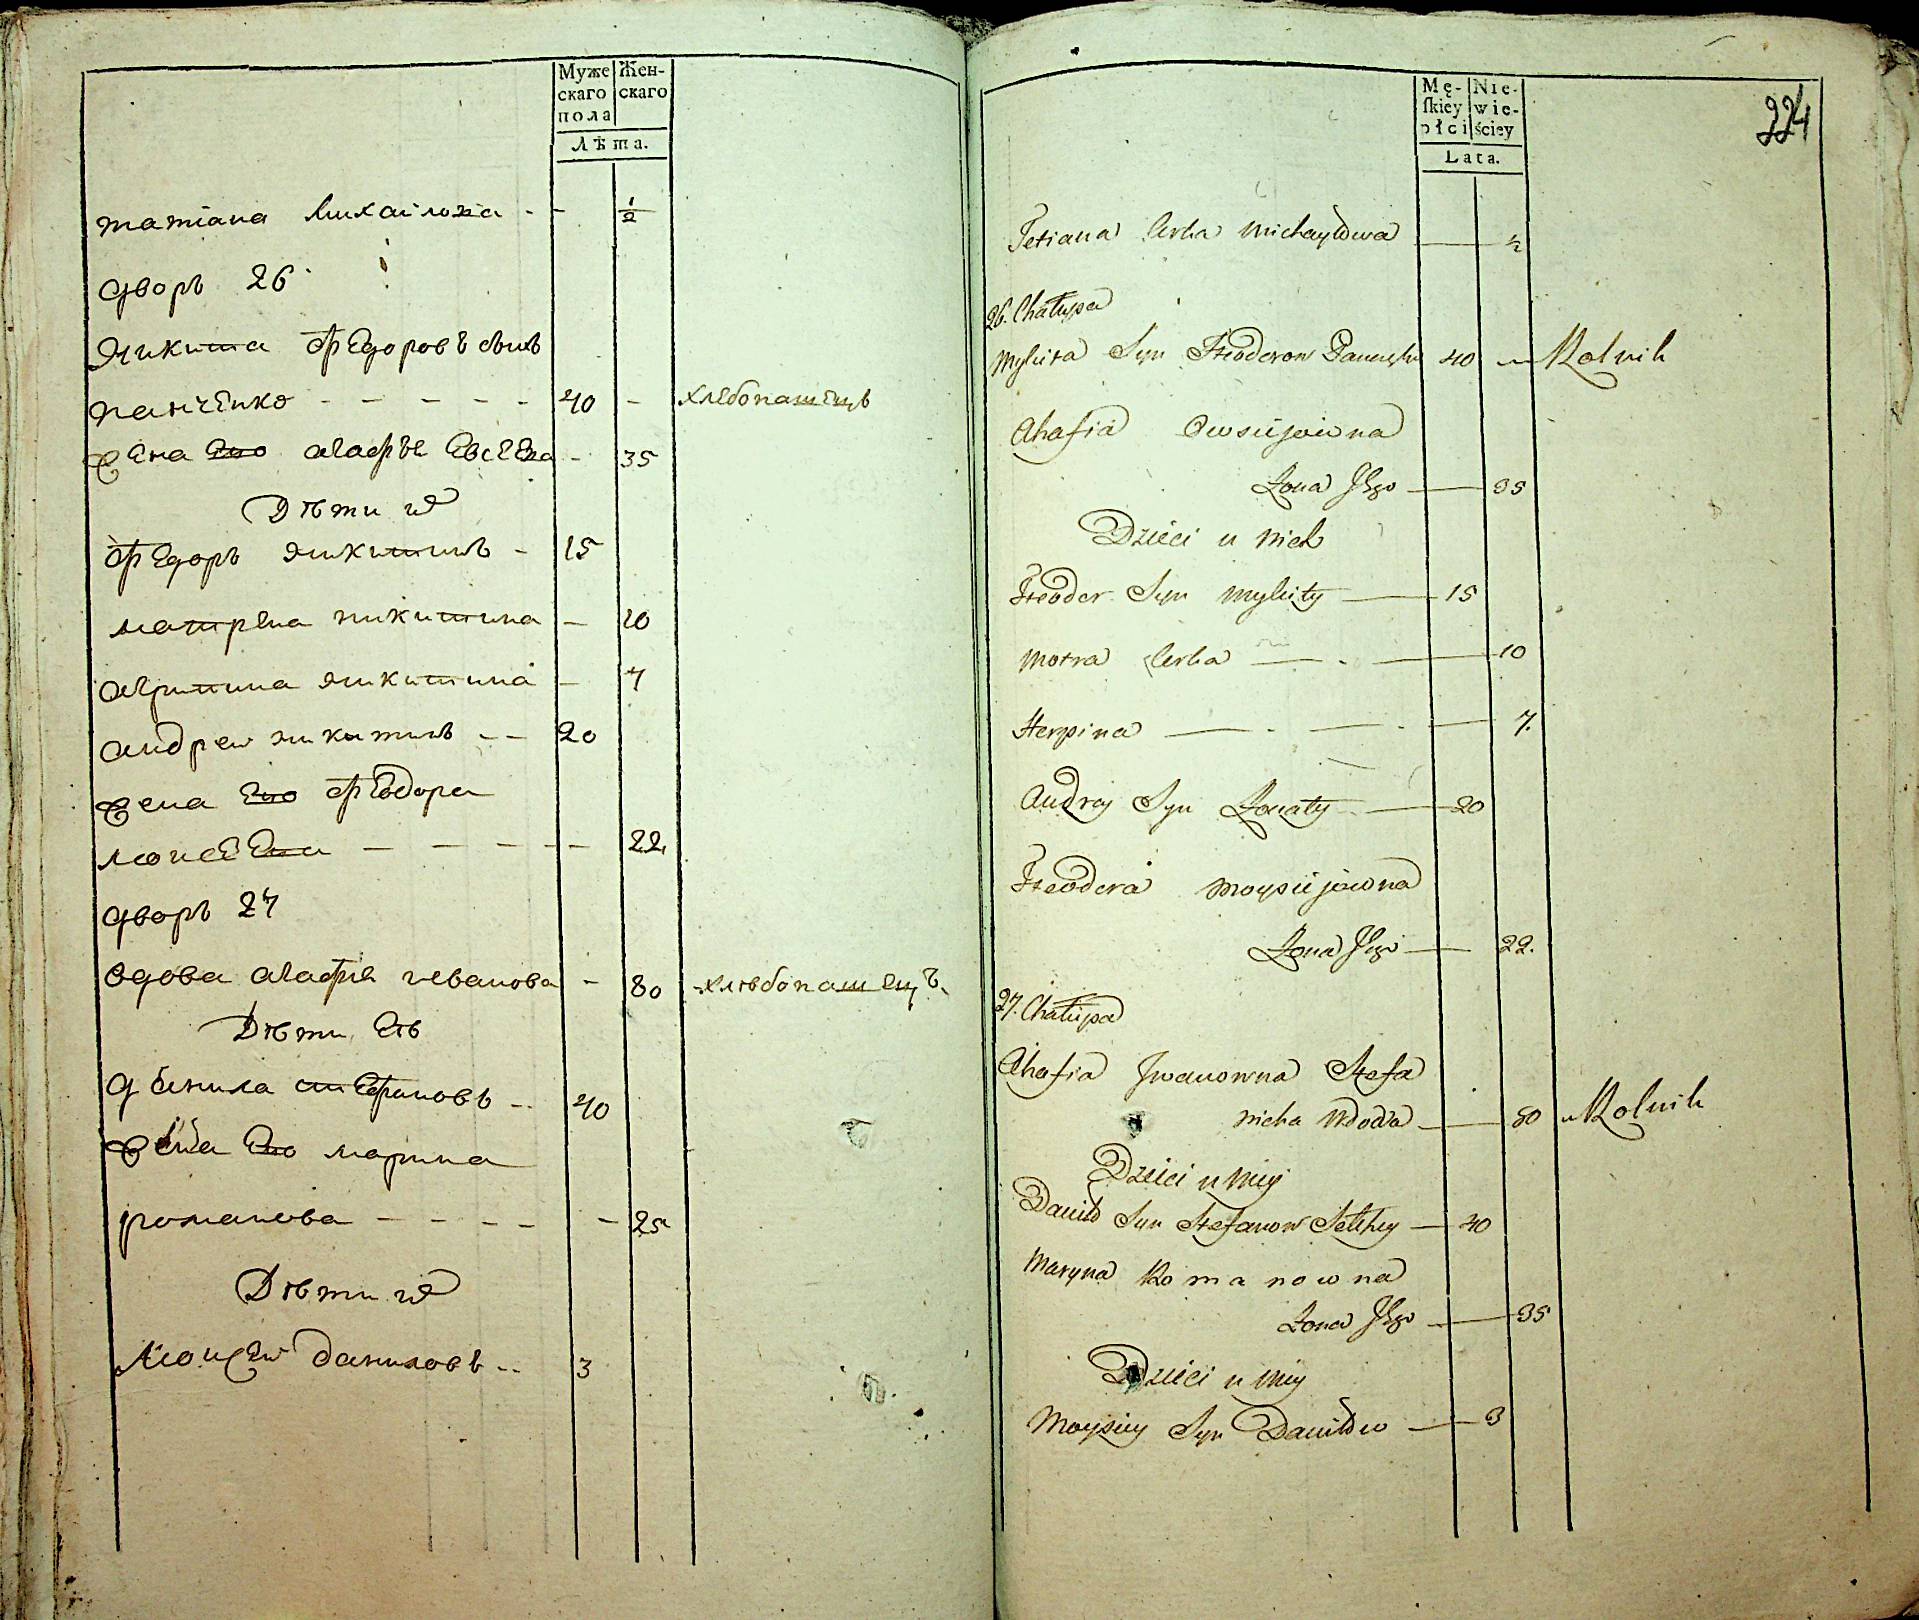 Муже Жен-
скаго скаго
пола
Лѣта.
татіана михаилова - - 1/2
дворъ 26
Никита Федоровъ сынъ
панченко - - - - - 40 - хлебопашецъ
жена его агафья Евсеева - 35
Дѣти их
Федоръ никитинъ - 15
матрена никитина - 10
агрипина никитина - 7
андреи никитинъ - - 20
жена его Феодора
моисеева - - - - - 22
дворъ 27
вдова агафия иванова - 80 хлѣбопашецъ
Дѣти Еѣ
данила стефановъ - 40
жена его марина
романова - - - - - 25
Дѣти их
Моисеи даниловъ - - 3
224
Mę- Nie-
skiey wie-
płci ściey
Lata.
Tetiana Corka Michayłowa ½
26. Chałupa
Mykita Syn Theodorow Panczenko 40 Rolnik
Ahafia Owsiijowna
Zona Jego 35
Dzieci u Nich
Theodor Syn Mykity 15
Motra Corka 10
Herpina 7.
Andrey Syn Zonaty 20
Theodora Moysiijowna
Zona Jego 22.
27. Chałupa
Ahafia Jwanowna Stefa
nicha Wdowa 80 Rolnik
Dzieci u Niey
Daniło Syn Stefanow 40
Maryna Romanowna
Zona Jego 35
Dzieci u Niey
Moysiey Syn Daniłow 3